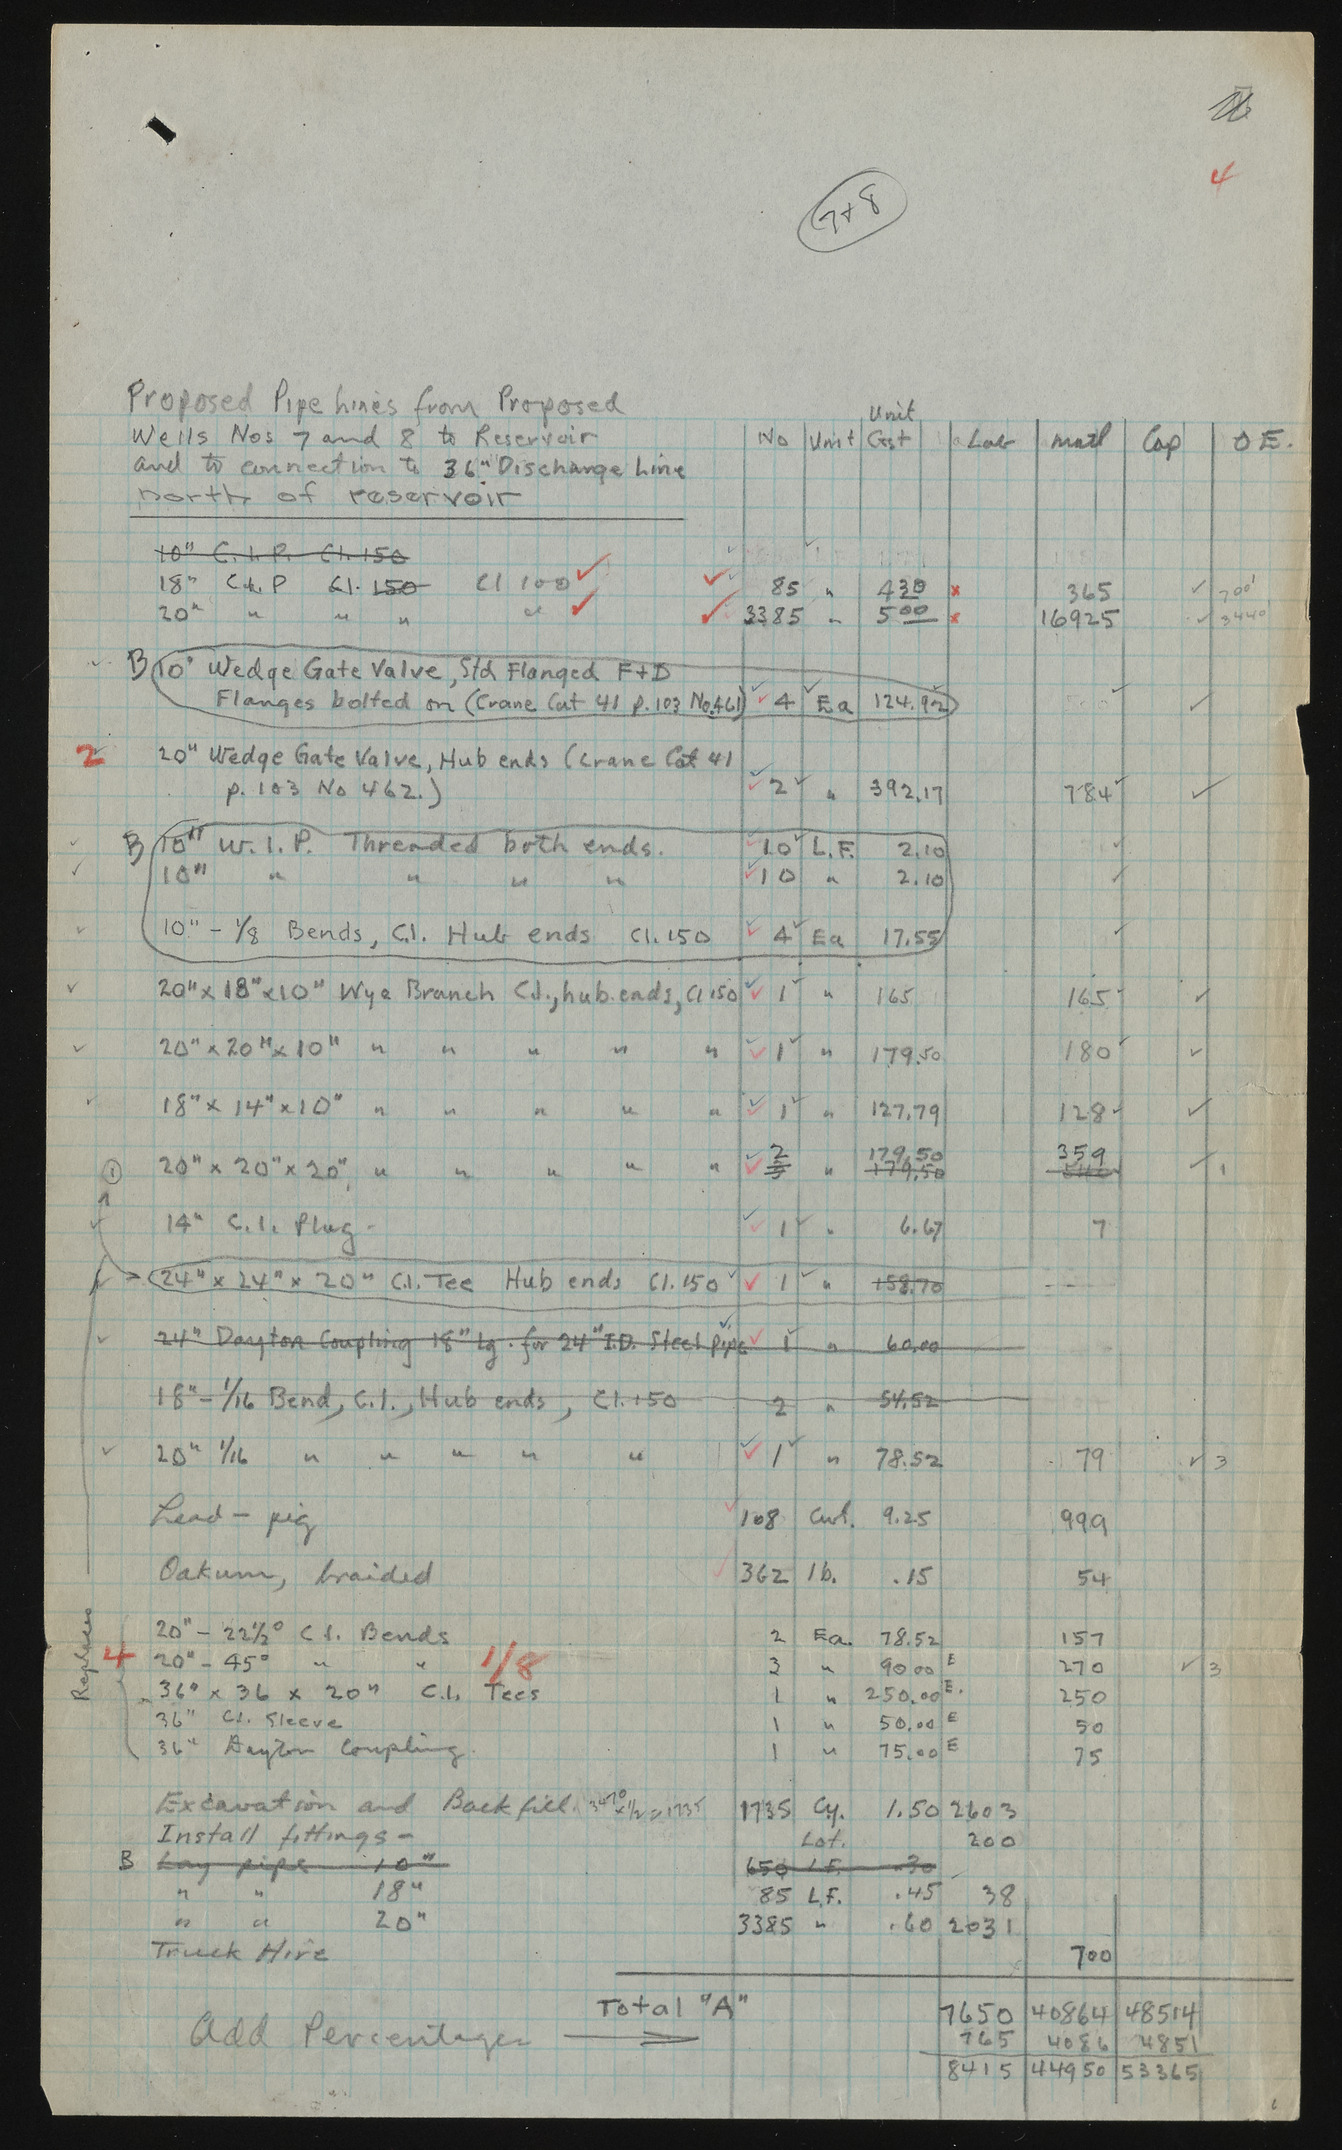 4
7+8
Proposed Pipe Lines from Proposed
Wells Nos 7 and 8 to Reservoir
and to connection to 36" Discharge Line
north of reservoir
No Unit Unit Cost Lab Matl Cap O E.
10" C.I.P. Cl. 150
18" C.I.P Cl. 150 Cl 100 85 " 4.30 x 365 700'
20" " " " " 3385 " 5.00 x 16925 3440'
B 10" Wedge Gate Valve, Std Flanged F+D
Flanges bolted on (Crane Cat 41 p. 103 No. 461) 4 Ea 124.92
2 20" Wedge Gate Valve, Hub ends (Crane Cat 41
p. 103 No 462.) 2 " 392.17 784
B 10" W.I.P. Threaded both ends. 10 L.F. 2.10
10" " " " " 10 " 2.10
10" - 1/8 Bends, C.I. Hub ends Cl. 150 4 Ea 17.55
20" x 18" x 10" Wye Branch C.I., hub ends, Cl 150 1 " 165 165
20" x 20" x 10" " " " " " 1 " 179.50 180
18" x 14" x 10" " " " " " 1 " 127.79 128
2 179.50 359
1 20" x 20" x 20" " " " " " 3 " 179.50 1
14" C.I. Plug - 1 " 6.67 7
24" x 24" x 20" C.I. Tee Hub ends Cl. 150 1 " 158.70 ---
24" Dayton Coupling 18" lg. for 24" I.D. Steel pipe 1 " 60.00
18" - 1/16 Bend, C.I., Hub ends, Cl. 150 2 " 54.52
20" 1/16 " " " " " 1 " 78.52 79 3
Lead - pig 108 Cwt. 9.25 999
Oakum, braided 362 lb. .15 54
Replaces
20" - 22 1/2° C.I. Bends 2 Ea. 78.52 157
4 20" - 45° " " 1/8 3 " 90.00 E 270 3
36" x 36 x 20" C.I. Tees 1 " 250.00 E. 250
36" C.I. Sleeve 1 " 50.00 E 50
36" Dayton Coupling 1 " 75.00 E 75
Excavation and Backfill 3470 x 1/2 = 1735 1735 Cy. 1.50 2603
Install fittings - Lot. 200
B Lay pipe 10" 650 L.F. .30
" " 18" 85 L.F. .45 38
" " 20" 3385 " .60 2031
Truck Hire 700
Total "A" 7650 40864 48514
Add Percentages 765 4086 4851
8415 44950 53365